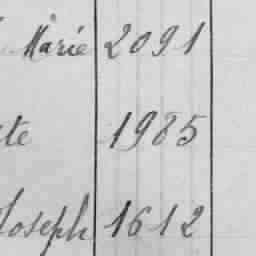 Marie 2091
te 1985
Joseph 1612